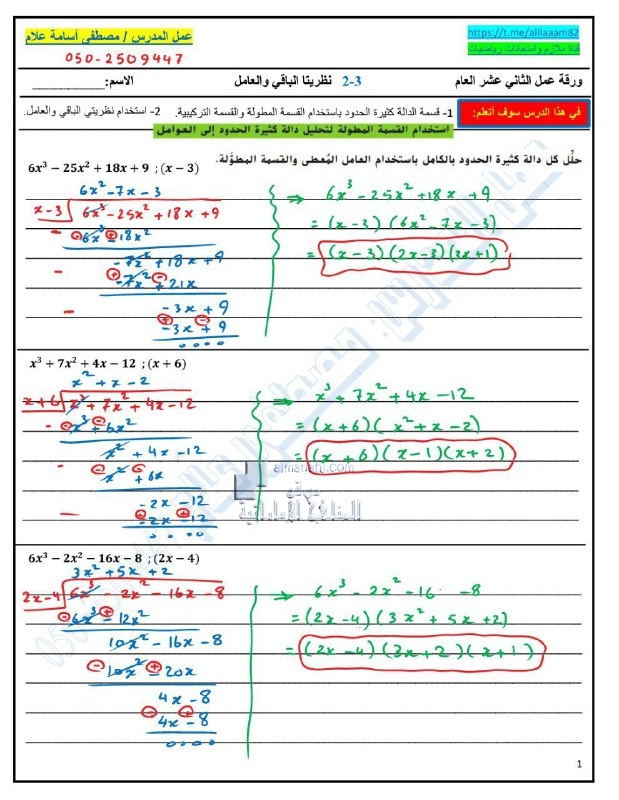 عمل المدرس / مصطفى أسامة علام
050-2509447
https://t.me/alllaaam82
قناة ملازم وامتحانات رياضيات
ورقة عمل الثاني عشر العام
2-3 نظريتا الباقي والعامل
الاسم:____________
في هذا الدرس سوف أتعلم:
1- قسمة الدالة كثيرة الحدود باستخدام القسمة المطولة والقسمة التركيبية.
2- استخدام نظريتي الباقي والعامل.
استخدام القسمة المطولة لتحليل دالة كثيرة الحدود إلى العوامل
حلِّل كل دالة كثيرة الحدود بالكامل باستخدام العامل المُعطى والقسمة المطوَّلة.
6x³ − 25x² + 18x + 9 ; (x − 3)
6x² − 7x − 3
x−3 6x³ − 25x² + 18x + 9
− 6x³ − 18x²
− 7x² + 18x + 9
− − 7x² + 21x
− 3x + 9
− − 3x + 9
0 0 0 0
⇒ 6x³ − 25x² + 18x + 9
= (x − 3) (6x² − 7x − 3)
= (x − 3) (2x − 3) (3x + 1)
x³ + 7x² + 4x − 12 ; (x + 6)
x² + x − 2
x+6 x³ + 7x² + 4x − 12
− x³ + 6x²
x² + 4x − 12
− x² + 6x
− 2x − 12
− − 2x − 12
0 0 0 0
⇒ x³ + 7x² + 4x − 12
= (x + 6) (x² + x − 2)
= (x + 6) (x − 1) (x + 2)
almanahj.com
موقع
المناهج الإماراتية
6x³ − 2x² − 16x − 8 ; (2x − 4)
3x² + 5x + 2
2x−4 6x³ − 2x² − 16x − 8
6x³ − 12x²
10x² − 16x − 8
10x² − 20x
4x − 8
4x − 8
0 0 0 0
⇒ 6x³ − 2x² − 16 − 8
= (2x − 4) (3x² + 5x + 2)
= (2x − 4) (3x + 2) (x + 1)
1